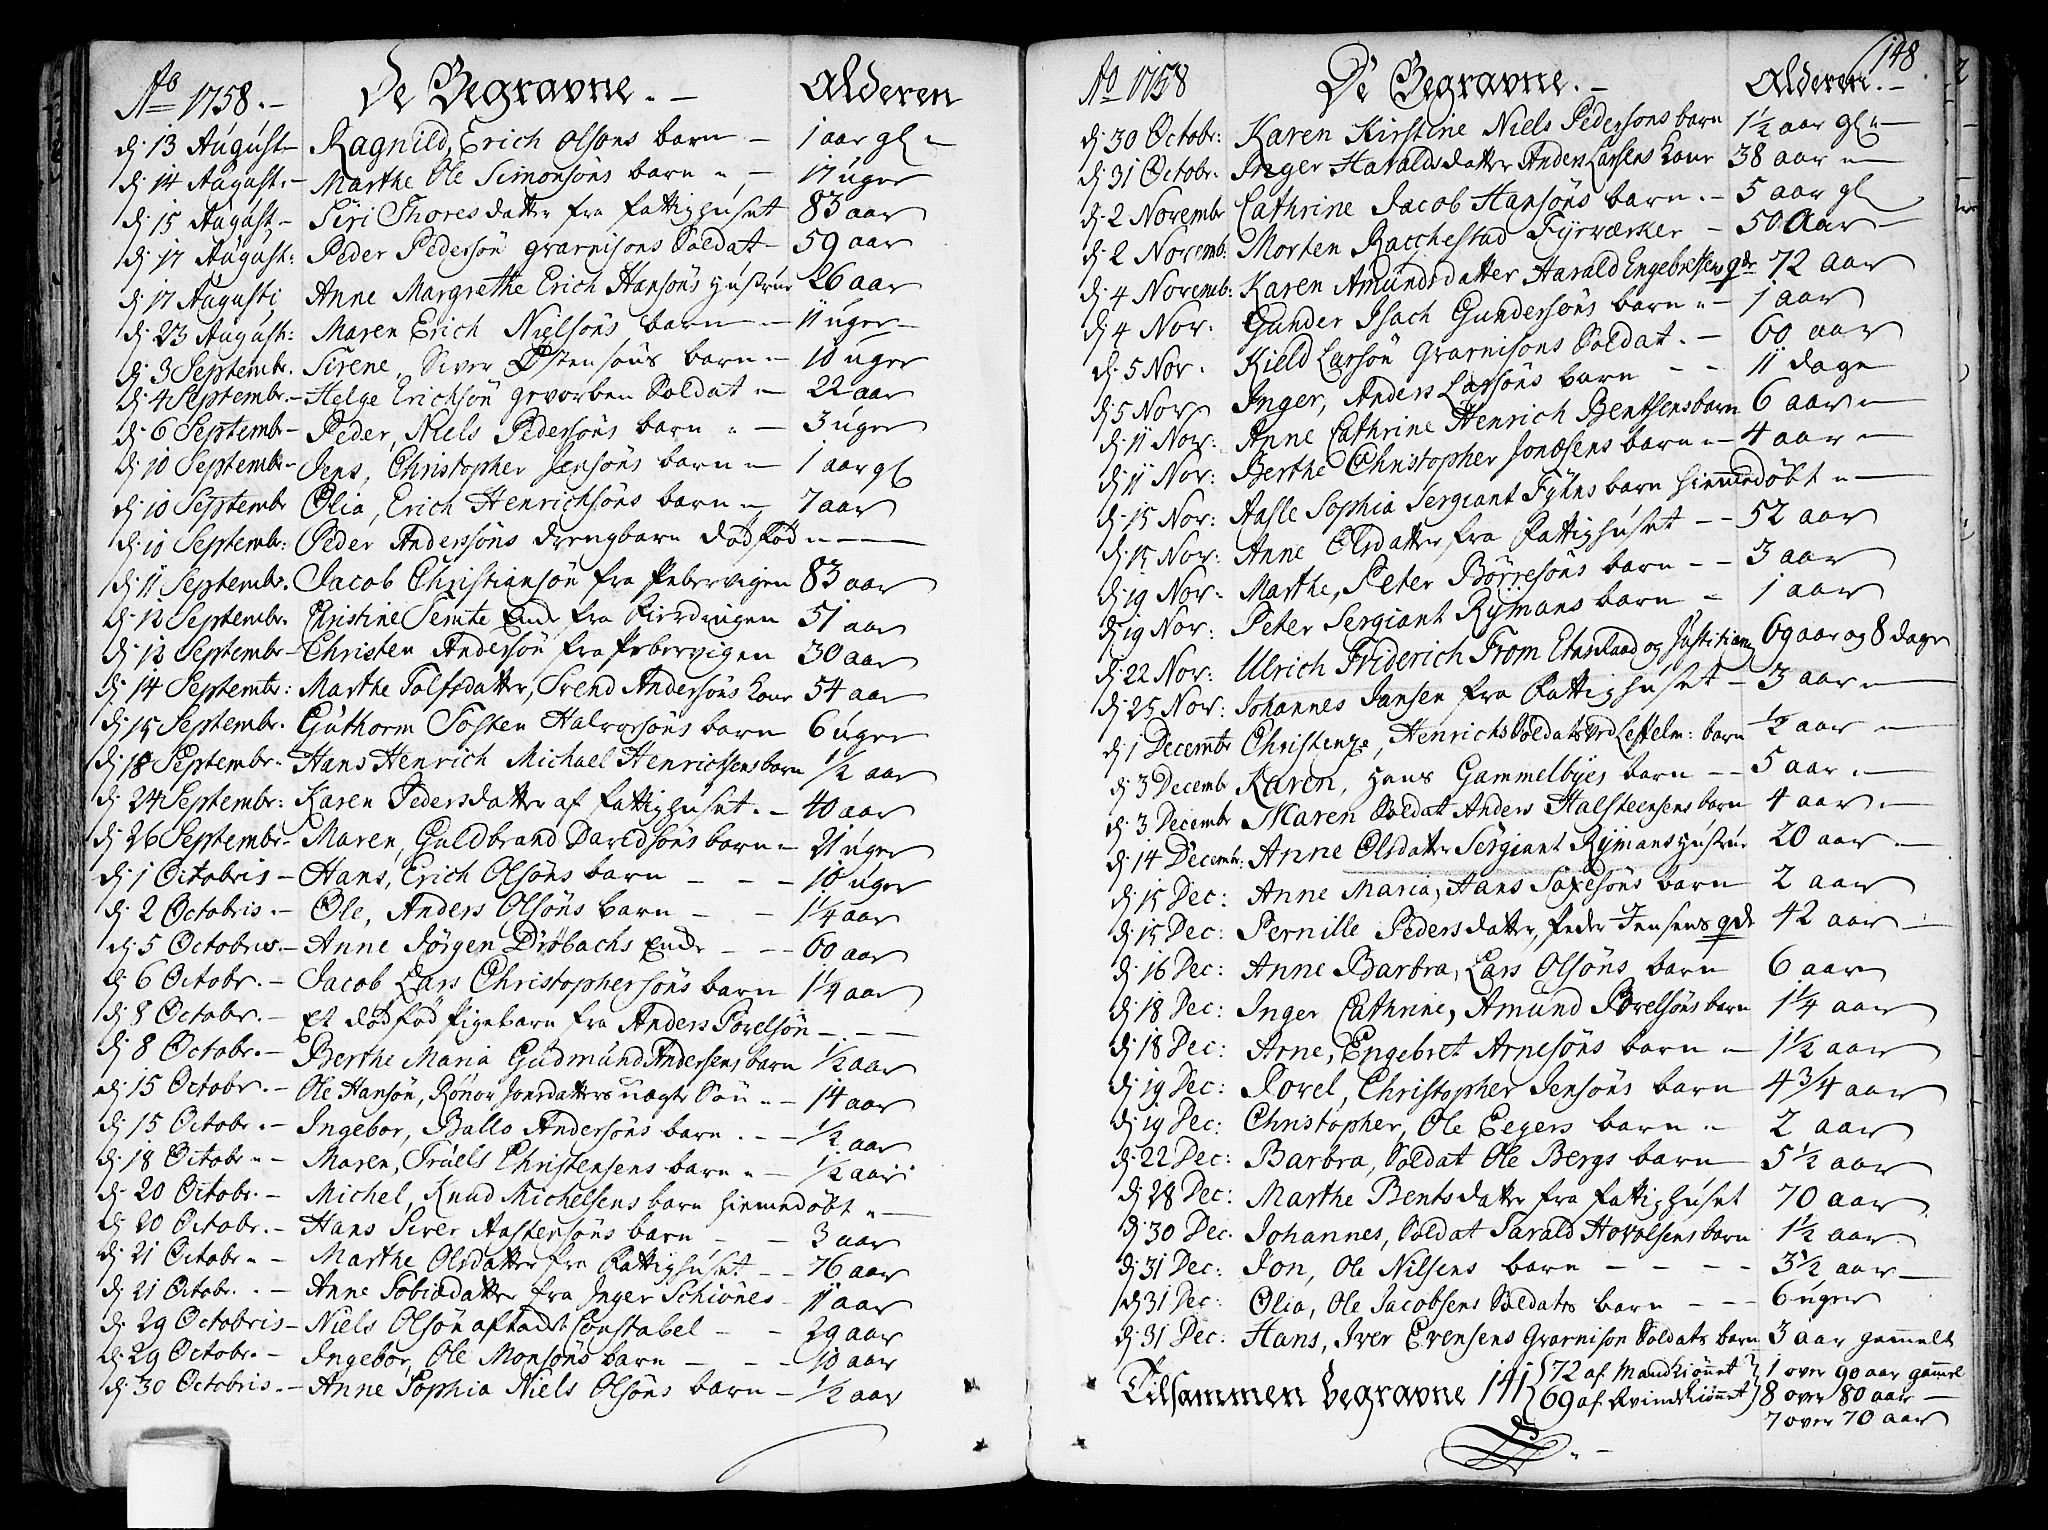 Ao 1758. De Begravne. Alderen
dj 13 August Ragnild, Erich Olsøns barn 1 aar gl
dj 14 August. Marthe Ole Simonsøns barn 17 uger
dj 15 August Siri Thoresdatter fra fattighuset 83 aar
dj 17 August: Peder Pedersøn Gvarnisons Soldat 59 aar
dj 17 Augusti Anne Margrethe Erich Hansøns Hustrue 26 aar
dj 23 August: Maren Erich Nielsøns barn 11 uger
dj 3 Septembr. Sirene, Siver Østensøns barn 10 uger
dj 4 Septembr. Helge Erichsøn gevorben Soldat 22 aar
dj 6 Septembr Peder, Niels Pedersøns barn 3 uger
dj 10 Septembr Jens, Christopher Jensøns barn 1 aar gl
dj 10 Septembr Olia, Erich Henrichsøns barn 7 aar
dj 10 Septembr: Peder Andersøns drengbarn dødfød
dj 11 Septembr. Jacob Christiansøn fra Pebervigen 83 aar
dj 12 Septembr. Christine Semte Enke fra Fierdingen 51 aar
dj 12 Septembr Christen Andersøn fra Pebervigen 30 aar
dj 14 Septembr: Marthe Tolfsdatter, Svend Andersøns Kone 54 aar
dj 15 Septembr. Guthorm Tosten Halvorsøns barn 6 uger
dj 18 Septembr. Hans Henrich Michael Henrichsens barn 1/2 aar
dj 24 Septembr: Karen Pedersdatter af fattighuset. 40 aar
dj 26 Septembr Maren, Guldbrand Davidsøns barn 21 uger
dj 1 Octobris Hans, Erich Olsøns barn 10 uger
dj 2 Octobris. Ole, Anders Olsøns barn 1 1/4 aar
dj 5 Octobris. Anne Jørgen Drøbachs Enke 60 aar
dj 6 Octobr. Jacob Lars Christophersøns barn 1 1/4 aar
dj 8 Octobr. Et dødfød pigebarn fra Anders Povelsøn
dj 8 Octobr. Berthe Maria Gudmund Andersens barn 1/2 aar
dj 15 Octobr. Ole Hansøn, Rønor Jonsdatters uægte Søn 14 aar
dj 15 Octobr. Ingebor, Ballo Andersøns barn. 1/2 aar
dj 18 Octobr Maren, Truels Christensens barn 1/2 aar
dj 20 Octobr. Michel, Knud Michelsens barn hiemedøbt
dj 20 Octobr. Hans Siver Aastensøns barn 3 aar
dj 21 Octobr Marthe Olsdatter fra Fattighuset 76 aar
dj 21 Octobr. Anne Tobiædatter fra Inger Schiønes 11 aar
dj 29 Octobris Niels Olsøn aftakt Constabel 29 aar
dj 29 Octobr. Ingebor, Ole Monsøns barn 10 aar
dj 30 Octobris. Anne Sophia Niels Olsøns barn 1/2 aar
148
Ao 1758 De Begravne. Alderen.
dj 30 Octobr: Karen Kirstine Niels Pedersøns barn 1 1/2 aar gl
dj 31 Octobr. Inger Haraldsdatter Anders Larsens Kone 38 aar
dj 2 Novembr Cathrine Jacob Hansøns barn. 5 aar gl
dj 2 Novemb. Morten Bacchestad Fyrværker 50 Aar
dj 4 Novemb: Karen Amundsdatter Harald Engebretsens qde 72 aar
dj 4 Nov. Gunder Isach Gundersøns barn 1 aar
dj 5 Nov. Kield Larsøn Gvarnisons Soldat. 60 aar
dj 5 Nov Inger, Anders Larsøns barn 11 dage
dj 11 Nov: Anne Cathrine Henrich Bentsens barn 6 aar
dj 11 Nov: Berthe Christopher Jonæsens barn 4 aar
dj 15 Nov: Aasle Sophia Sergiant Fyhns barn hiemmedøbt
dj 15 Nov: Anne Olsdatter fra Fattighuset 52 aar
dj 19 Nov: Marthe, Peter Børresøns barn 3 aar
dj 19 Nov: Peter Sergiant Rymans barn 1 aar
dj 22 Nov: Ulrich Friderich From Etatsraad og Justitiari 69 aar og 8 dage
dj 25 Nov: Johannes Jansen fra Fattighuset 3 aar
dj 1 Decembr Christenze, Henrich Soldats ved Lestelm: barn 1/2 aar
dj 3 Decembr Karen, Hans Gammelbyes barn 5 aar
dj 3 Decembr Maren Soldat Anders Halsteensens barn 4 aar
dj 14 Decembr: Anne Olsdatter Sergiant Rymans Hustrue 20 aar
dj 15 Dec: Anne Maria, Hans Saxesøns barn 2 aar
dj 15 Dec: Pernille Pedersdatter, Peder Jensens qde 42 aar
dj 16 Dec: Anne Barbra, Lars Olsøns barn 6 aar
dj 18 Dec: Inger Cathrine, Amund Povelsøns barn 1 1/4 aar
dj 18 Dec: Arne, Engebret Arnesøns barn 1 1/2 aar
dj 19 Dec: Povel, Christopher Jensøns barn 4 3/4 aar
dj 19 Dec: Christopher, Ole Eegers barn 2 aar
dj 22 Dec: Barbra, Soldat Ole Bergs barn 5 1/2 aar
dj 28 Dec: Marthe Bentsdatter fra fattighuset 70 aar
dj 30 Dec. Johannes, Soldat Tarald Hovolsens barn 1 1/2 aar
dj 31 Dec: Jon, Ole Nilsens barn 3 1/2 aar
dj 31 Dec: Olia, Ole Jacobsens Soldats barn 6 uger
dj 31 Dec: Hans, Iver Evensens Gvarnison Soldats barn 3 aar gammelt
Tilsammen begravne 141 { 72 af Mandkiønnet } 1 over 90 aar gammel
69 af Qvindekiønnet } 8 over 80 aar
7 over 70 aar